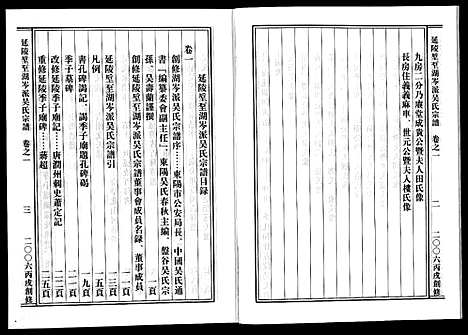 延陵堂至湖岑派吴氏宗譜 卷之一 二 二〇〇六丙戌創修
九房二分乃賡堂成貴公暨夫人田氏像
長房住義義麻車、世元公暨夫人樓氏像
延陵堂至湖岑派吴氏宗譜目録
卷一
創修湖岑派吴氏宗譜序……東陽市公安局長、中國吴氏通
書『編纂委會副主任』、東陽吴氏春秋主編、盤谷吴氏
孫、吴壽蘭謹撰……一頁
創修延陵堂至湖岑派吴氏宗譜董事會成員名録、董事成員
……一頁
延陵堂至湖岑派吴氏宗譜引……五頁
凡例……七頁
書孔碑謁記、謁季子廟題孔碑碣……九頁
季子墓碑……一一頁
改修延陵季子廟記……唐潤州刺史蕭定記……一二頁
重修延陵季子廟碑……蔣超……一五頁
延陵堂至湖岑派吴氏宗譜 卷之一 三 二〇〇六丙戌創修